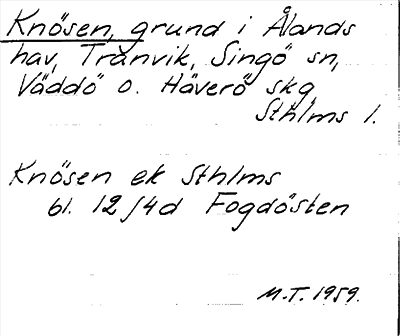 Knösen, grund i Ålands
hav, Tranvik, Singö sn,
Väddö o. Häverö skg,
Sthlms l.
Knösen ek Sthlms
bl. 12/4d Fogdösten
M.T. 1959.